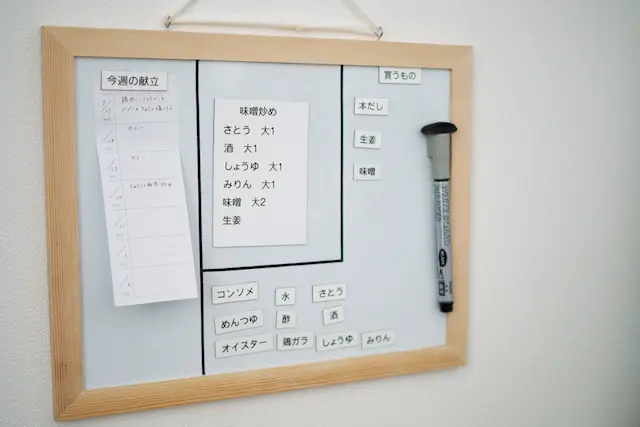 今週の献立
カレー
カレー
味噌炒め
さとう　大1
酒　大1
しょうゆ　大1
みりん　大1
味噌　大2
生姜
買うもの
本だし
生姜
味噌
コンソメ　水　さとう
めんつゆ　酢　酒
オイスター　鶏ガラ　しょうゆ　みりん